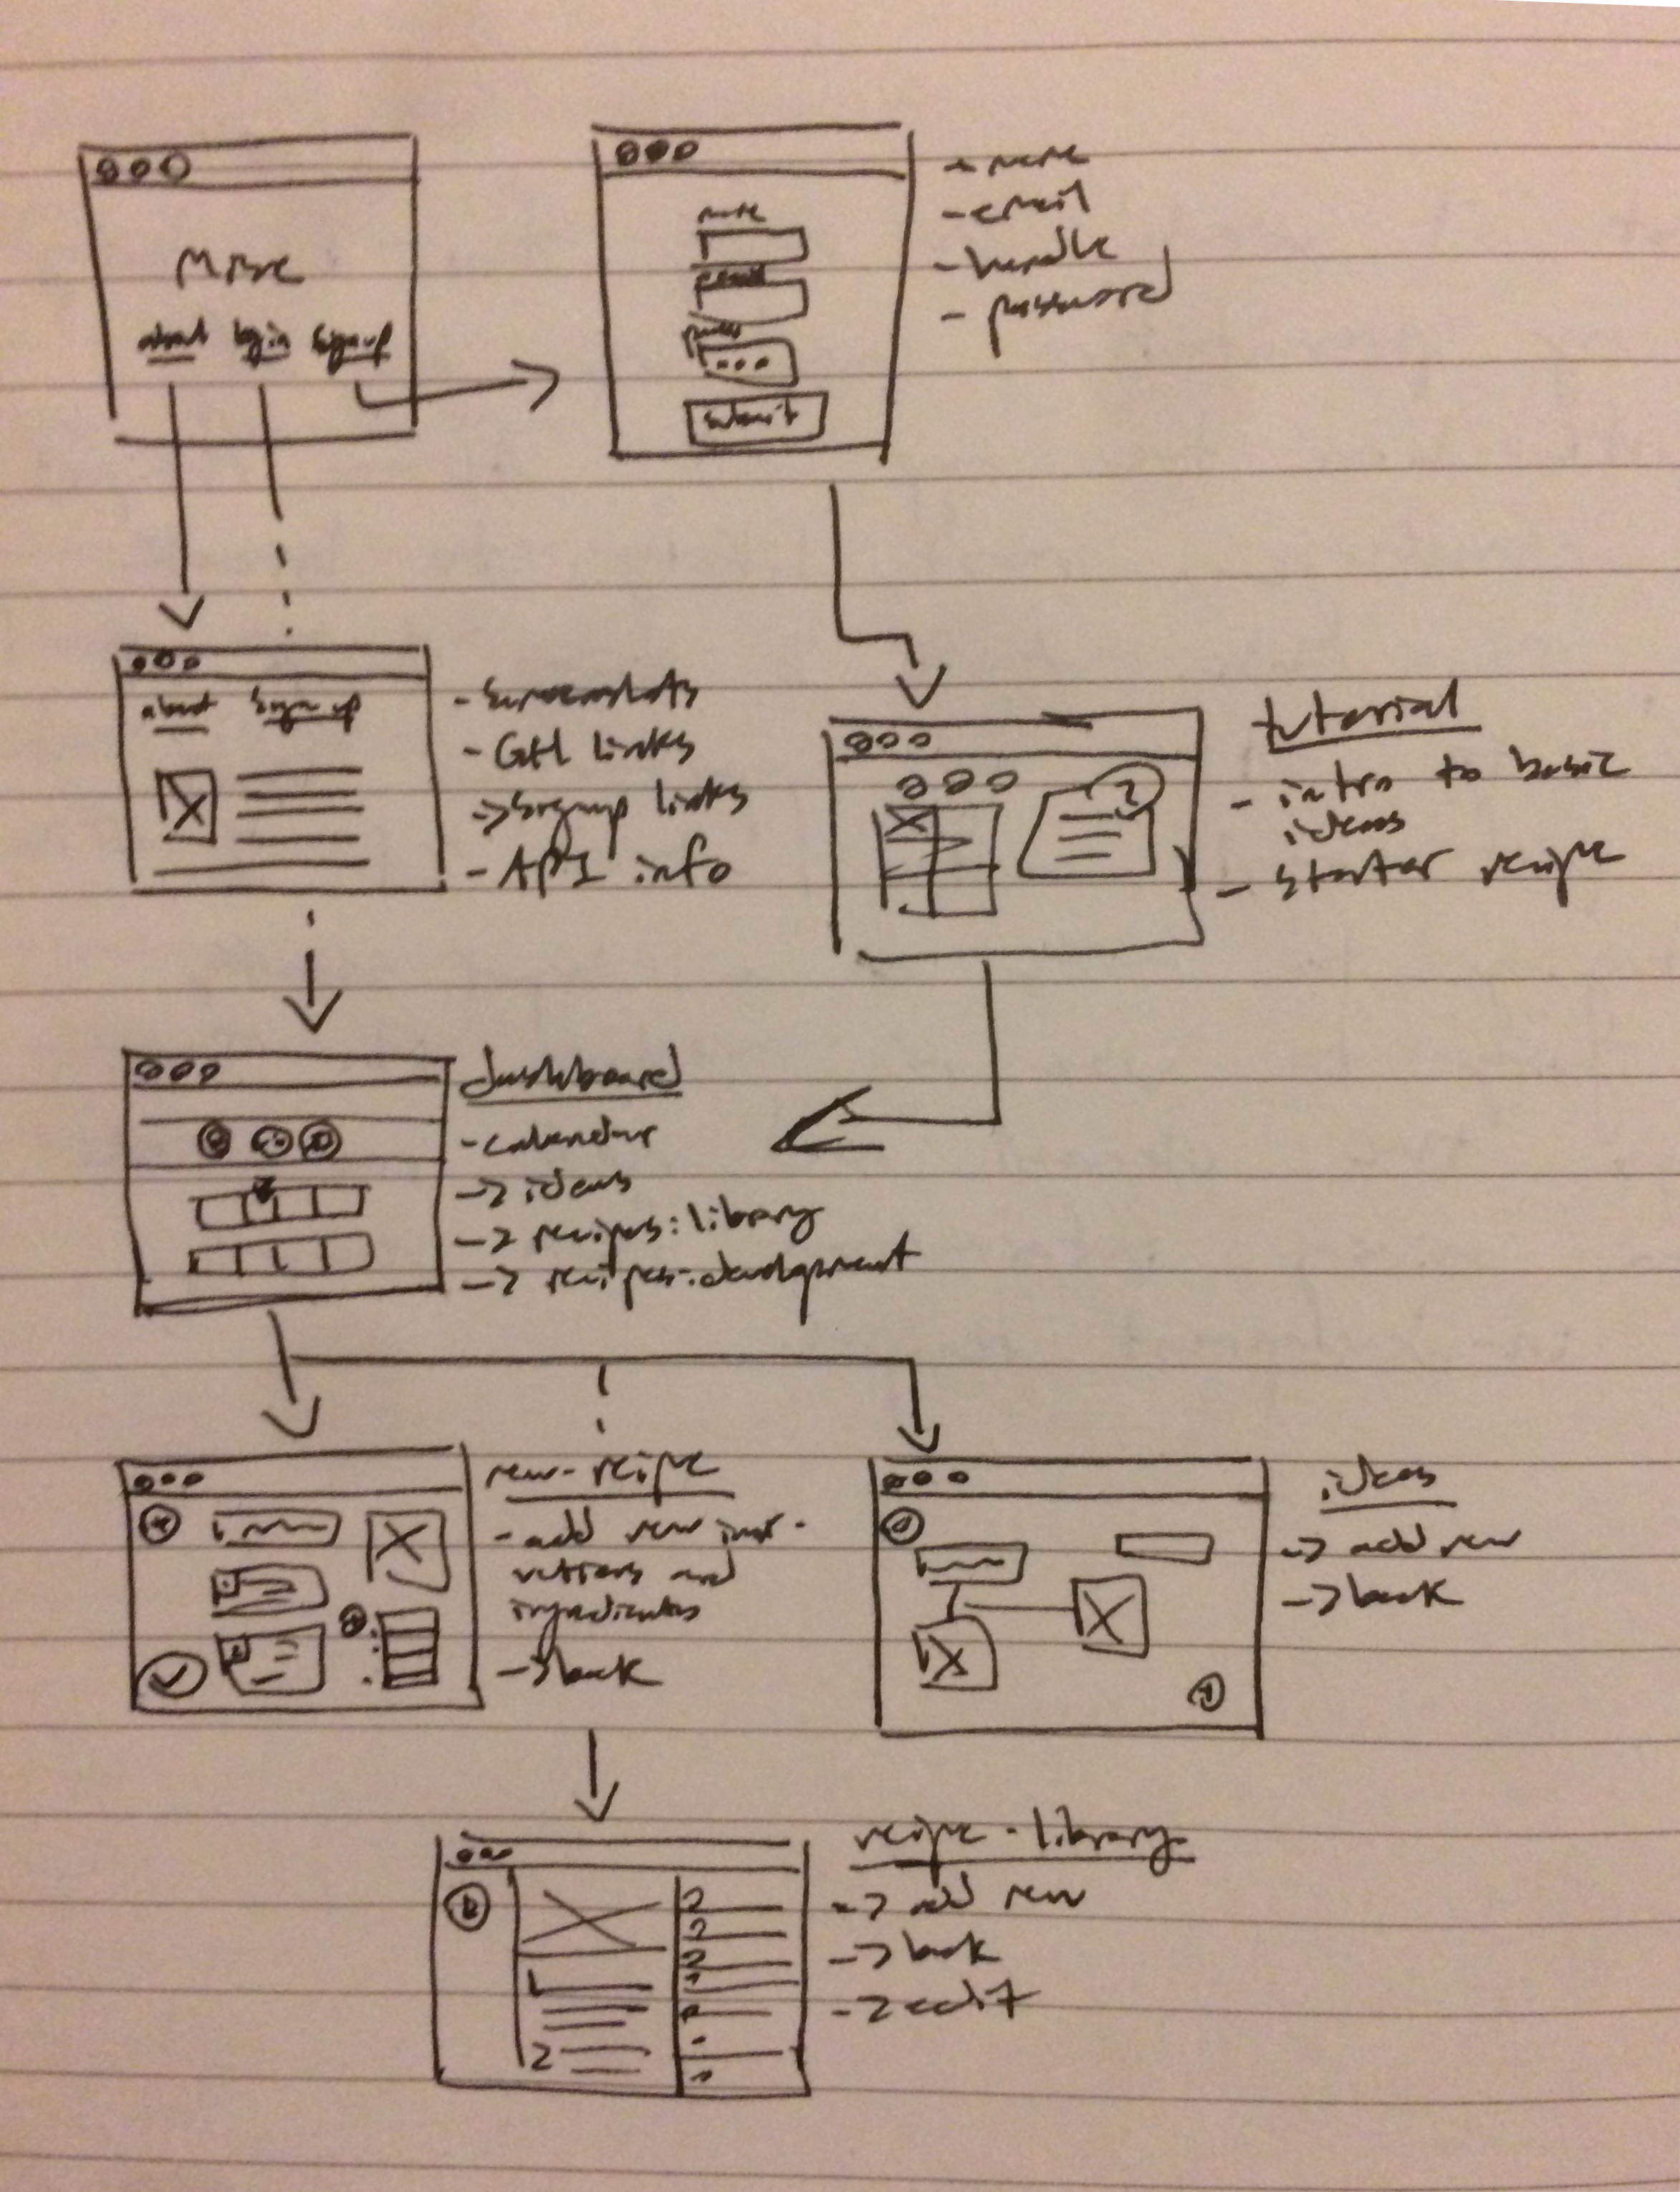 Mise
about login signup
name
email
pass
submit
- name
- email
- handle
- password
about sign up
- Screenshots
- GH links
-> Signup links
- API info
tutorial
- intro to basic
ideas
- starter recipe
dashboard
- calendar
-> ideas
-> recipes:library
-> recipes:development
new-recipe
- add new inst-
ructions and
ingredients
-> back
ideas
-> add new
-> back
recipe-library
-> add new
-> back
-> edit
1
2